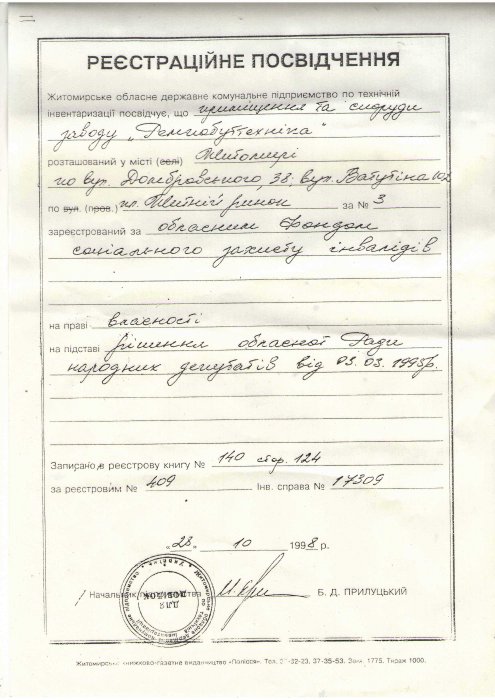 РЕЄСТРАЦІЙНЕ ПОСВІДЧЕННЯ
Житомирське обласне державне комунальне підприємство по технічній
інвентаризації посвідчує, що приміщення та споруди
заводу „Рембобуттехніка"
розташований у місті (селі) Житомирі
по вул. Домбровського, 38, вул. Ватутіна
по вул. (пров.) пл. Житній ринок за № 3
зареєстрований за обласним Фондом
соціального захисту інвалідів
на праві власності
на підставі рішення обласної Ради
народних депутатів від 03.03.1993р.
Записано в реєстрову книгу № 140 стор. 124
за реєстровим № 409 Інв. справа № 17309
„23" 10 1998 р.
Начальник Б. Д. ПРИЛУЦЬКИЙ
ДЛЯ
ДОВІДОК
Житомирське книжково-газетне видавництво «Полісся». Тел. 37-35-53. Зам. 1775. Тираж 1000.